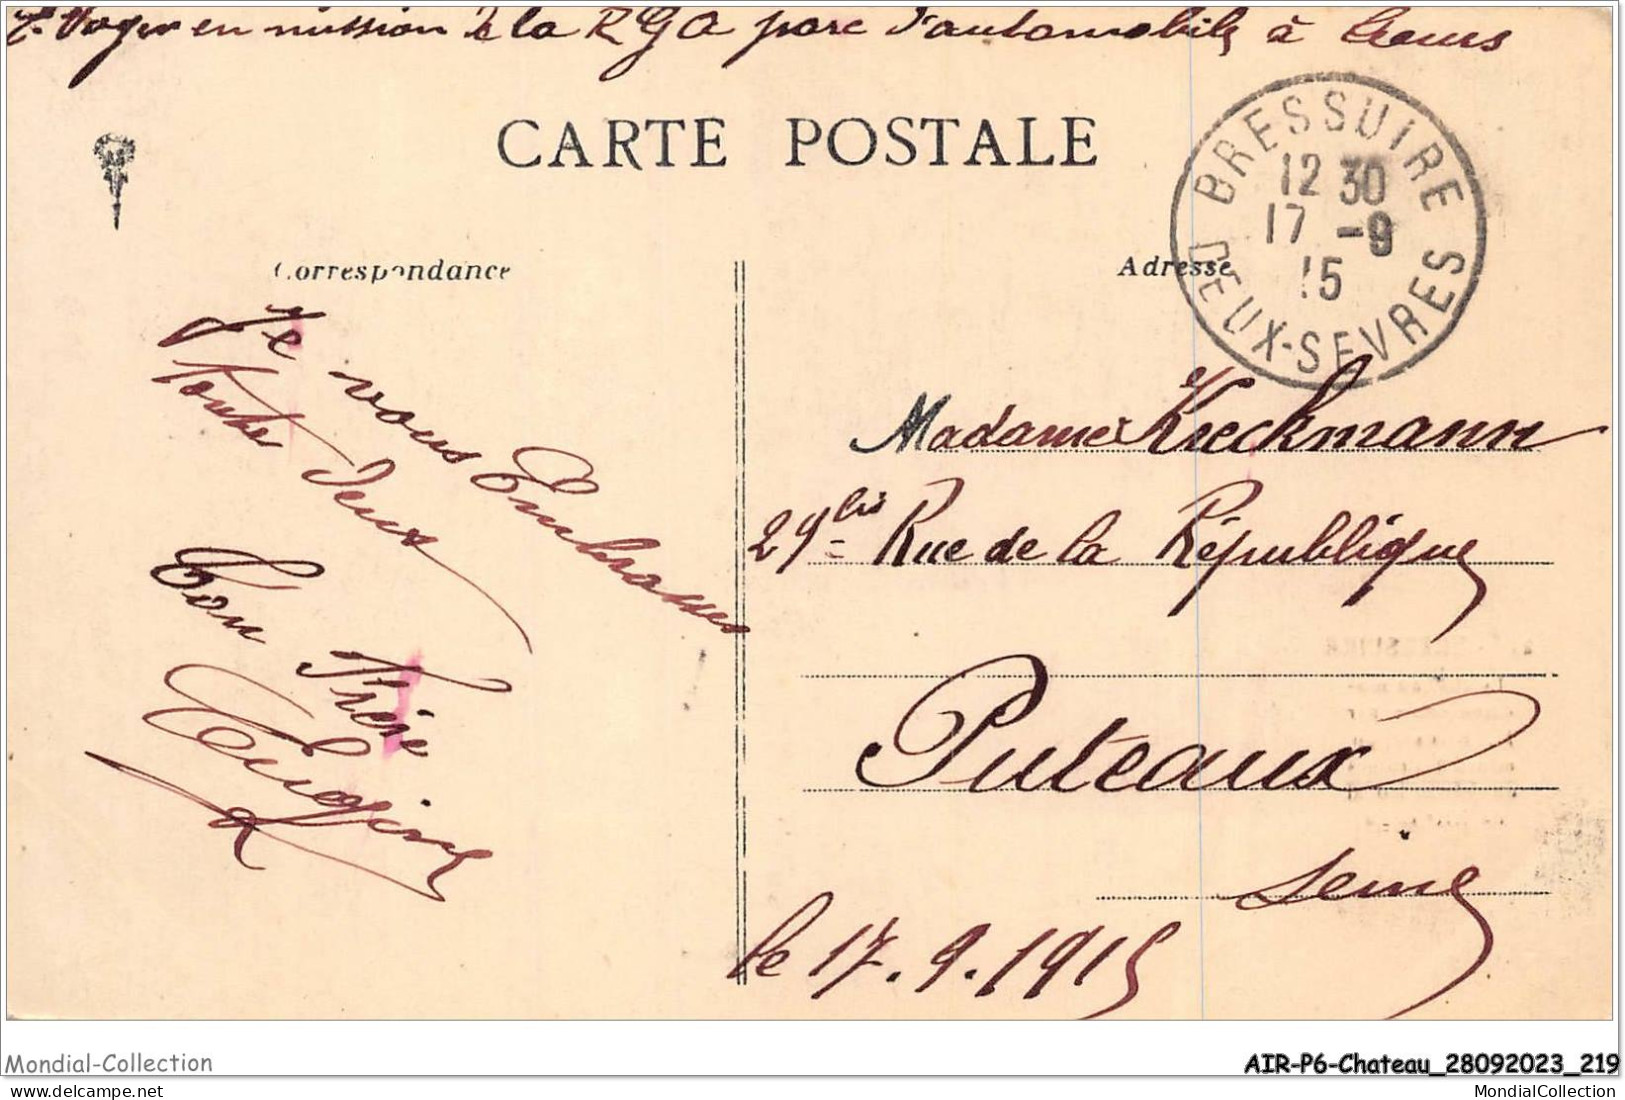 en mission de la RGA parc d'automobile à Tours
CARTE POSTALE
BRESSUIRE
12 30
17 -9
15
DEUX-SEVRES
Correspondance
Adresse
Je vous Embrasses
Toutes Deux
Ton Frère
Madame Kreckmann
29 bis Rue de la République
Puteaux
Seine
le 17.9.1915
Mondial-Collection
AIR-P6-Chateau_28092023_219
MondialCollection